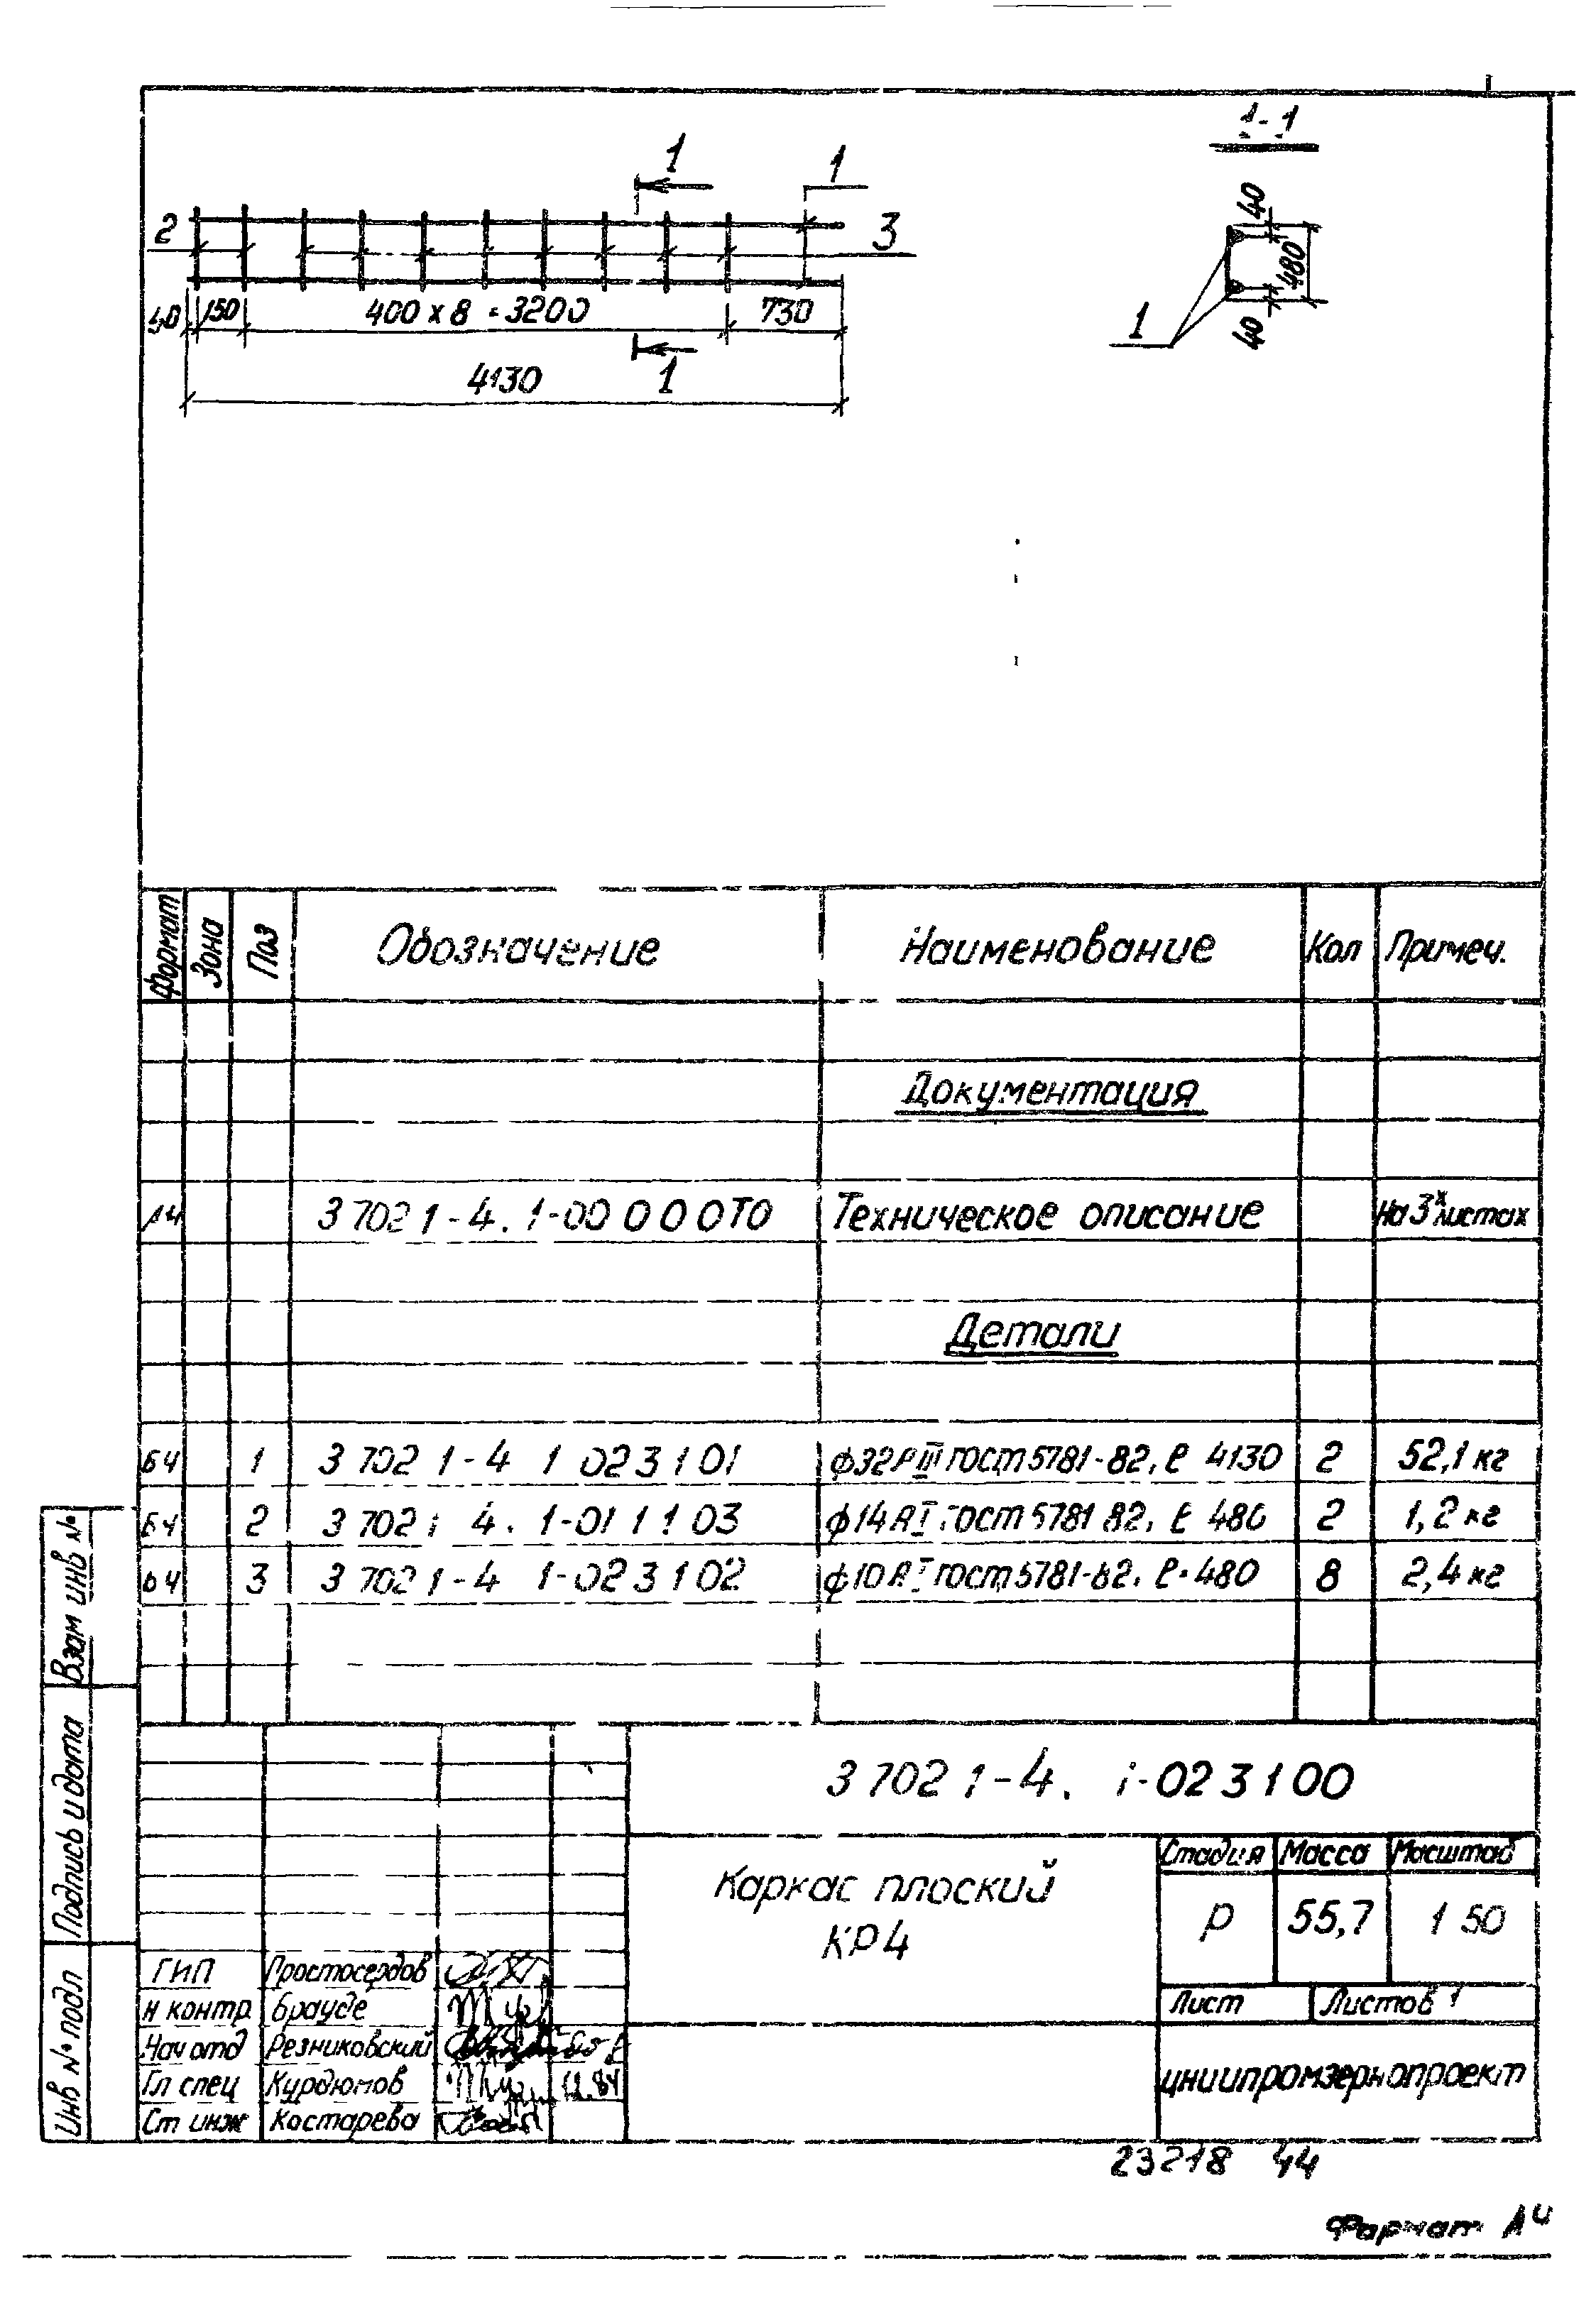 1-1
1
1
2
3
40
480
40
1
50
150
400 x 8 = 3200
730
1
4130
Формат
Зона
Поз
Обозначение
Наименование
Кол
Примеч.
Документация
А4
3 702 1-4. 1-00 0 0 0 ТО
Техническое описание
На 3х листах
Детали
БЧ
1
3 702 1-4 1 023 1 01
ф32АIII ГОСТ 5781-82, ℓ 4130
2
52,1 кг
БЧ
2
3 702 1 4. 1-01 1 1 03
ф14АI ГОСТ 5781 82, ℓ 480
2
1,2 кг
БЧ
3
3 702 1-4 1-023 1 02
ф10АI ГОСТ 5781-82, ℓ=480
8
2,4 кг
Взам инв №
Подпись и дата
Инв № подл
3 702 1-4. 1-023 1 00
Каркас плоский
КР4
Стадия
Масса
Масштаб
Р
55,7
1 50
Лист
Листов 1
ГИП
Простосердов
Н контр
Брауде
Нач отд
Резниковский
Гл спец
Курдюмов
12.84
Ст инж
Костарева
ЦНИИПРОМЗЕРНОПРОЕКТ
23218 44
Формат А4